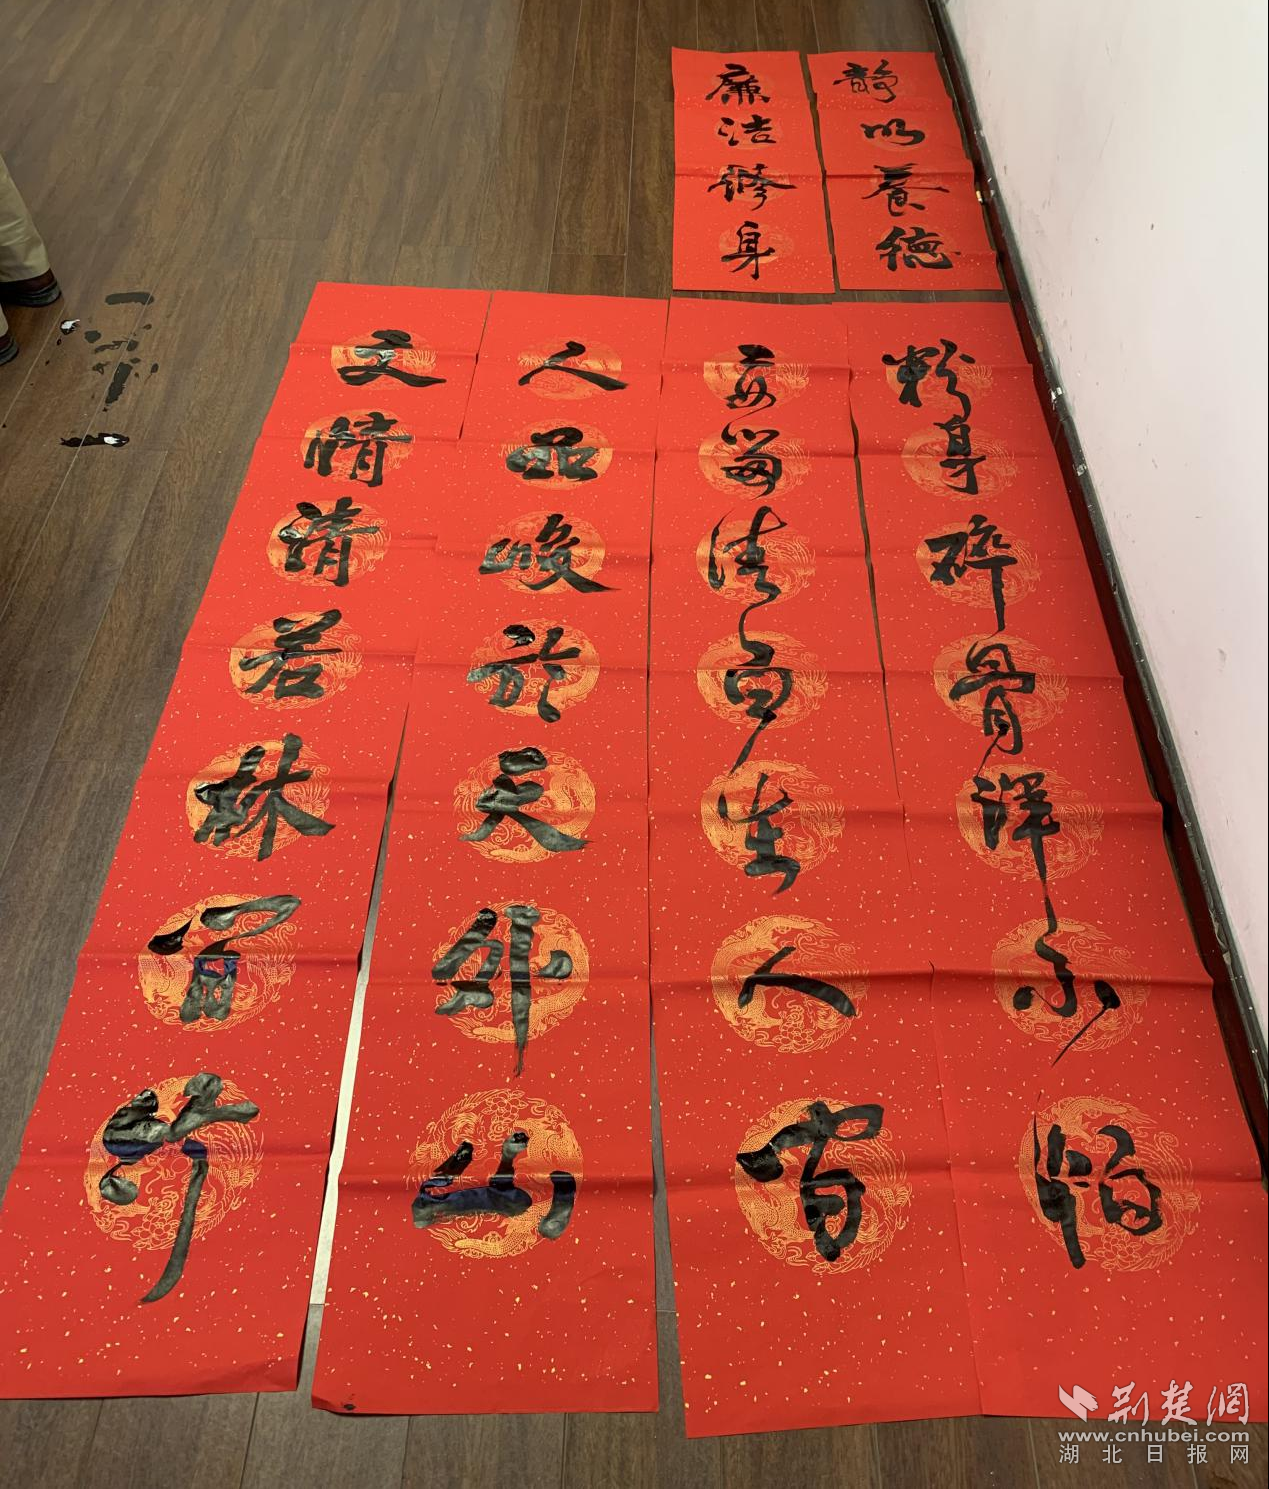 静以養德
廉洁修身
粉身碎骨渾不怕
要留清白在人間
人品峻於天外山
文情清若林間竹
荆楚網
www.cnhubei.com
湖北日报网